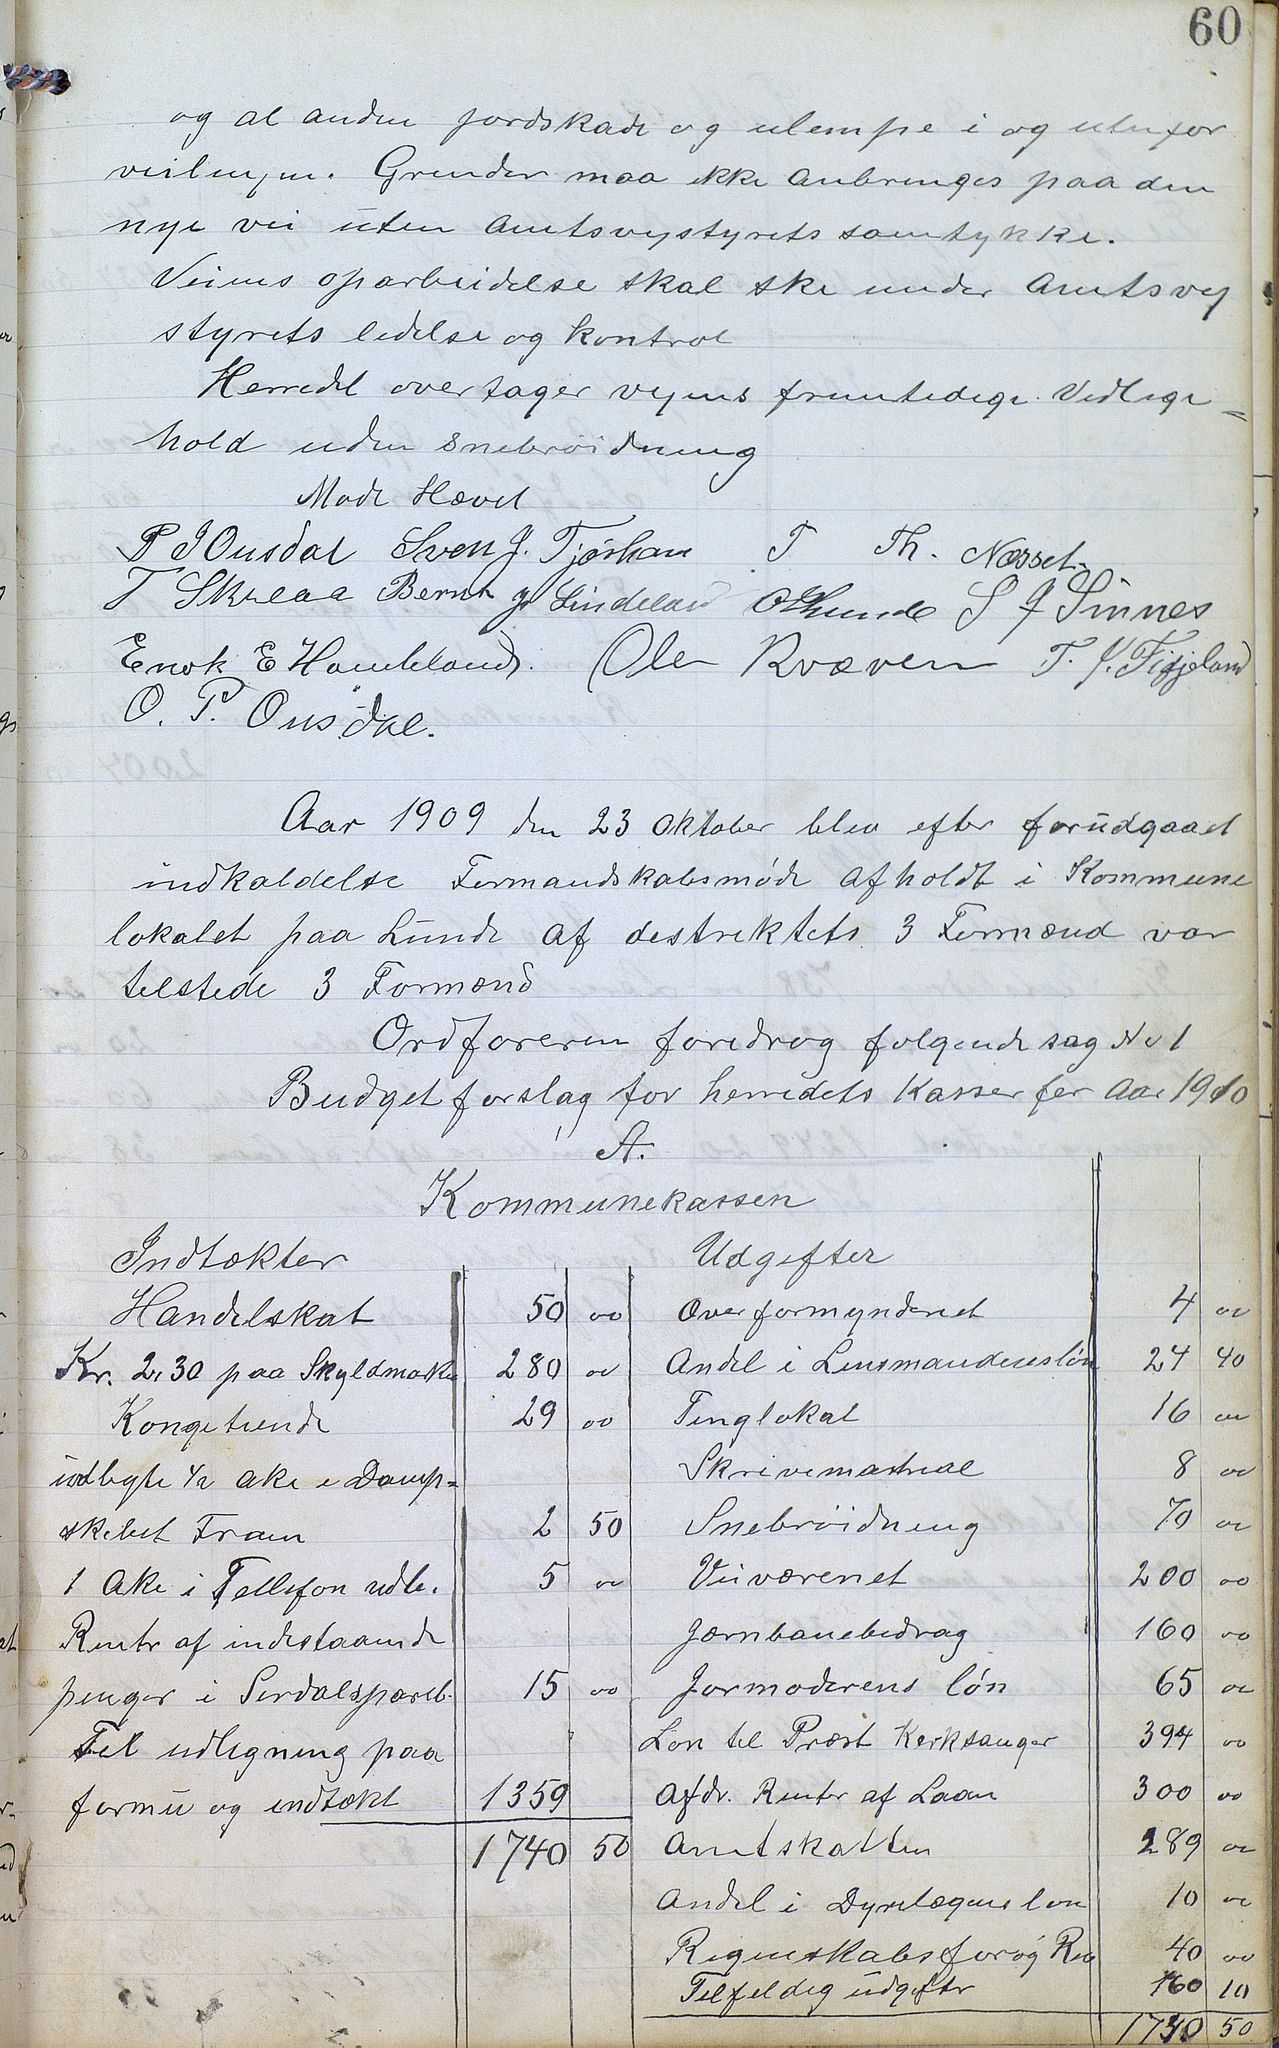 60
og al anden jordskade og ulempe i og utenfor
veilinjen. Grinder maa ikke anbringes paa den
nye vei uten Amtsveystyrets samtykke.
Veiens oparbeidelse skal ske under Amtsvey
styrets ledelse og kontrol
Herredet overtager veyens fremtedige Vedlige=
hold uden snebrøidning
Møde Hævet
P J Ousdal Sven J. Tjørham T Th. Næsset.
T Skrelaa Bernt J. Lindeland O Lunde S J Sinnes
Enok E Haubeland. Ole Kvæven T. J. Fidjeland
O. P. Ousdal.
Aar 1909 den 23 Oktober blev efter forudgaaet
indkaldelse Formandskabsmøde afholdt i Kommune
lokalet paa Lunde af destrektets 3 Formænd var
telstede 3 Formænd
Ordføreren foredrog følgende sag No 1
Budgetforslag for herredets Kasser for Aar 1910
A.
Kommunekassen
Indtækter Udgifter
Handelskat 50 00 Overformynderiet 4 00
Kr. 2,30 paa Skyldmarken 280 00 Andel i Lensmandenes løn 24 40
Kongetiende 29 00 Tinglokal 16 00
Skrivematrial 8 00
udbytte 1/2 Akc i Damp=
skebet Fram 2 50 Snebrøidning 70 00
1 Akc i Tellefon udb. 5 00 Veivæsenet 200 00
Rentr af indestaaende Jærnbanebedrag 160 00
penger i Serdalspareb. 15 00 Jormoderens løn 65 00
Tel udligning paa Løn til Præst Kerksanger 394 00
formu og indtækt 1359 Afdr. Rentr af Laan 300 00
1740 50 Amtskatten 289 00
Andel i Dyrelægens løn 10 00
Regnskabsfør og Rev 40 00
Telfeldig udgiftr 160 10
1740 50